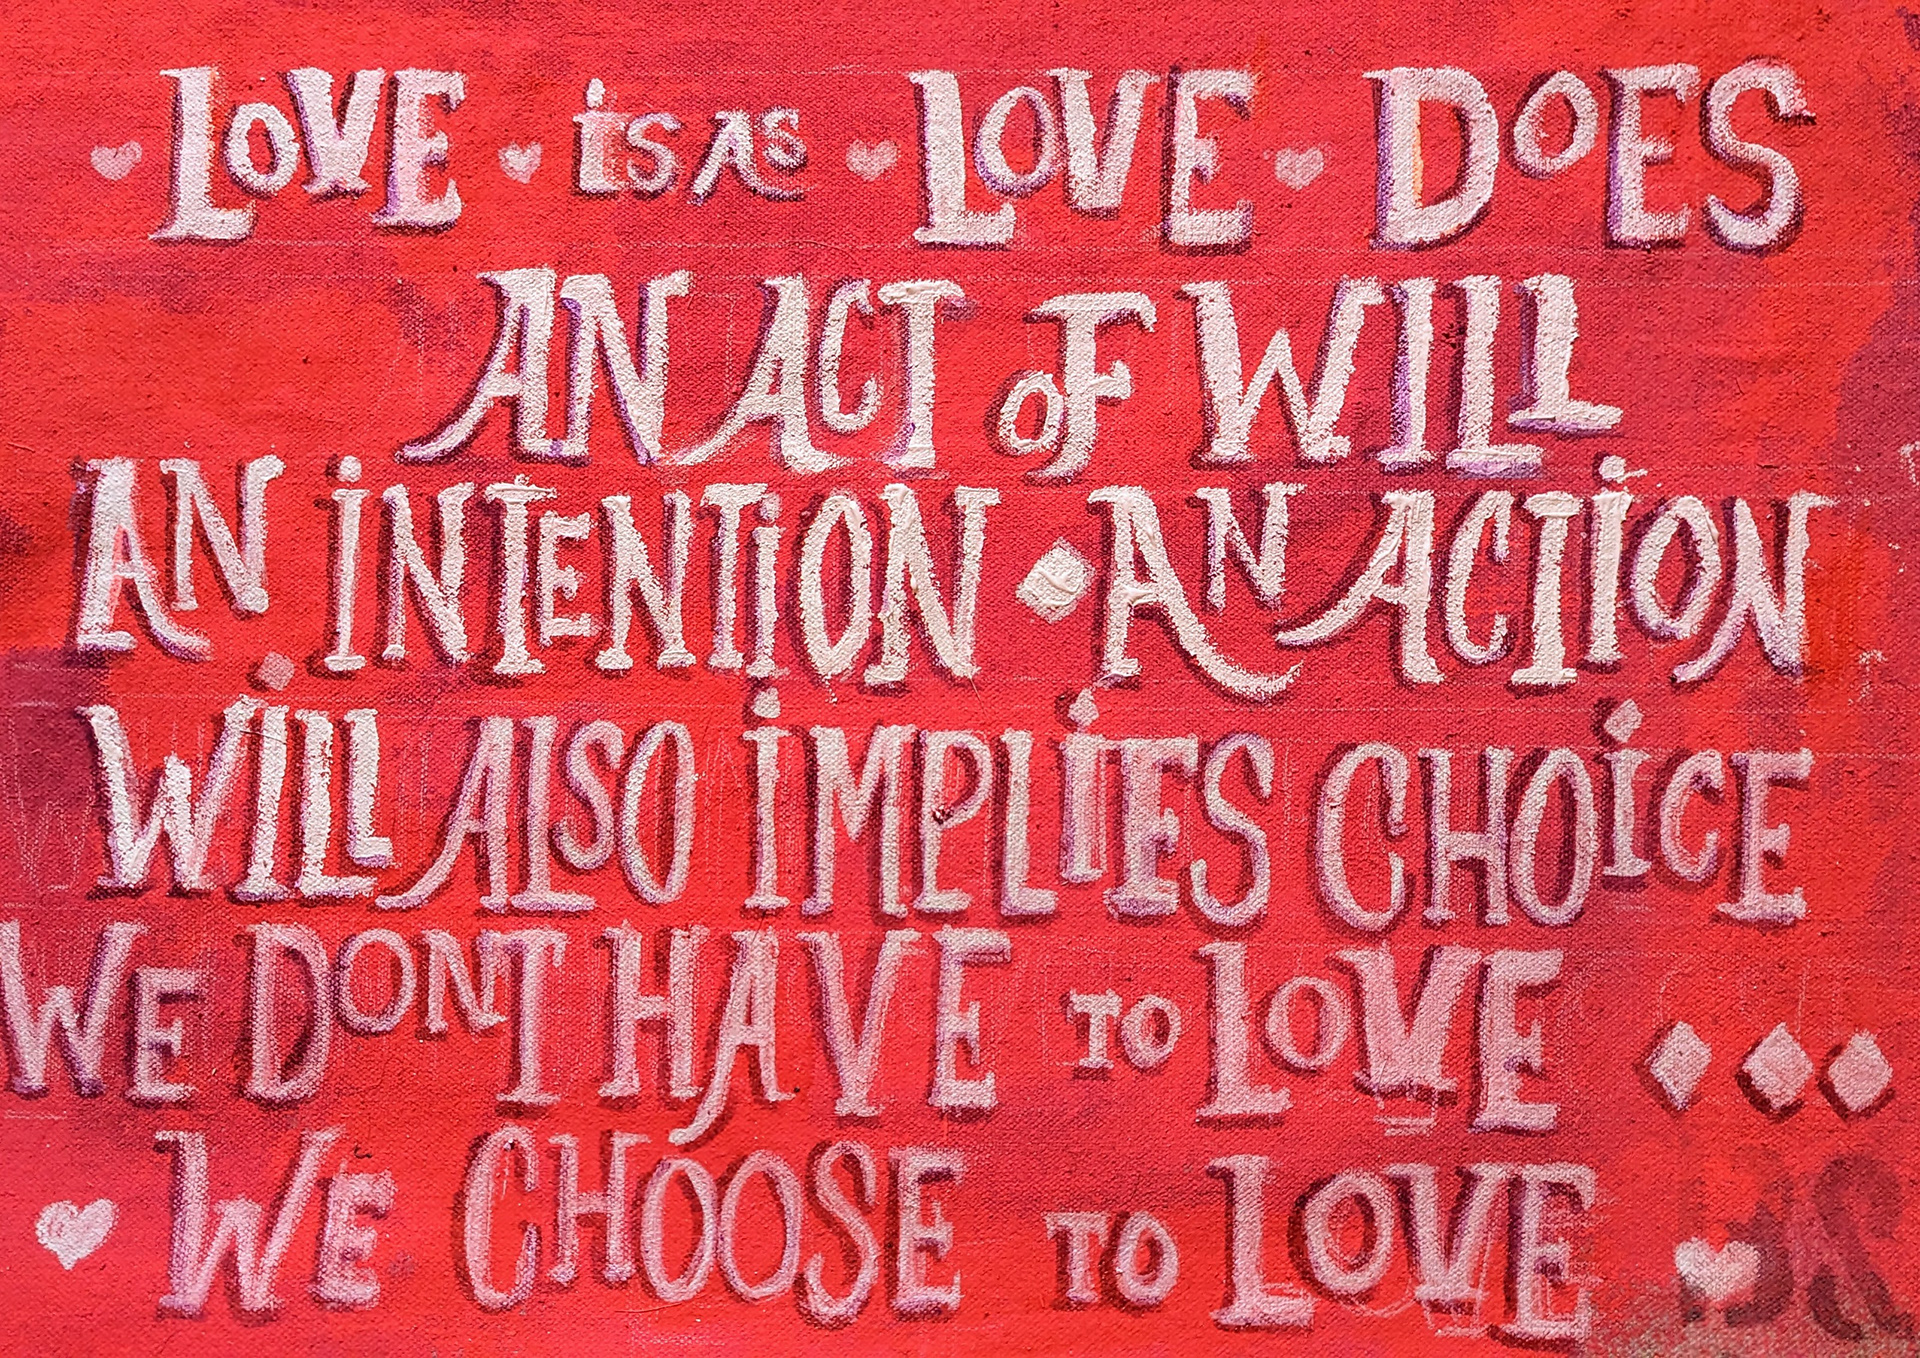 LOVE iS AS LOVE DOES
AN ACT OF WILL
AN iNTENTiON AN ACTiON
WiLL ALSO iMPLiES CHOiCE
WE DONT HAVE TO LOVE
WE CHOOSE TO LOVE